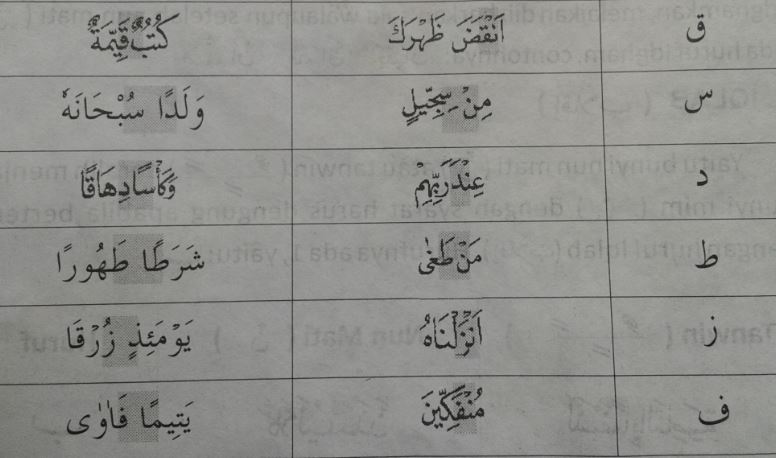 ق اَنْقَضَ ظَهْرَكَ كُتُبٌ قَيِّمَةٌ
س مِنْ سِجِّيْلٍ وَلَدًا سُبْحَانَهٗ
د عِنْدَ رَبِّهِمْ وَكَأْسًا دِهَاقًا
ط مَنْ طَغٰى شَرَطًا طَهُورًا
ز اَنْزَلْنَاهُ يَوْمَئِذٍ زُرْقَا
ف مُنْفَكِّيْنَ يَتِيمًا فَاٰوٰى